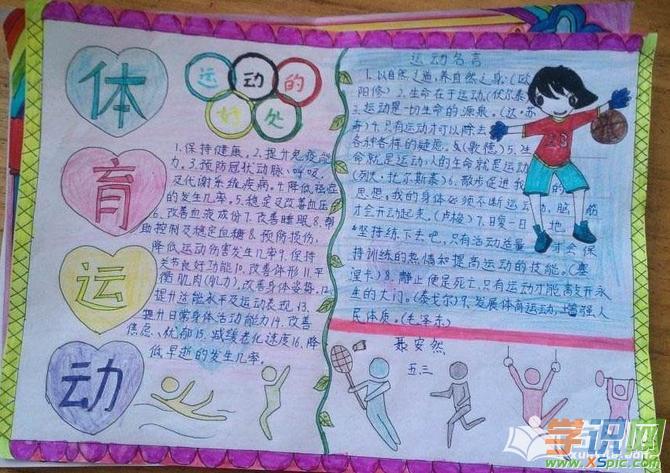 体
育
运
动
运动的
好处
1.保持健康。2.提升免疫能
力.3.预防冠状动脉、呼吸
及代谢系统疾病.4.降低癌症
的发生几率.5.稳定及改善血压
6.改善血液成份7.改善睡眠.8.帮
助控制及稳定血糖8.预防损伤,
降低运动伤害发生几率.9.保持
关节良好功能.10.改善体形11.平
衡肌肉(肌力),改善身体姿势.12
提升达能水平及运动表现.13.
提升日常身体活动能力14.改善
焦虑、忧郁.15.减缓老化速度16.降
低早逝的发生几率。
运动名言
1.以自然之道,养自然之身.(欧
阳修)2.生命在于运动.(伏尔泰)
3.运动是一切生命的源泉.(达·芬
奇)4.只有运动才可以除去
各种各样的疑虑.(歌德)5.生
命就是运动,人的生命就是运动
(列夫·托尔斯泰)6.散步促进我的
思想,我的身体必须不断运动,脑筋
才会开动起来.(卢梭)7.日复一日地
坚持练下去吧,只有活动适量才会保
持训练的热情和提高运动的技能.(塞
涅卡)8.静止便是死亡,只有运动才能敲开永
生的大门.(泰戈尔)9.发展体育运动,增强人
民体质.(毛泽东)
聂安然
五.三
学识网
www.XSpic.com